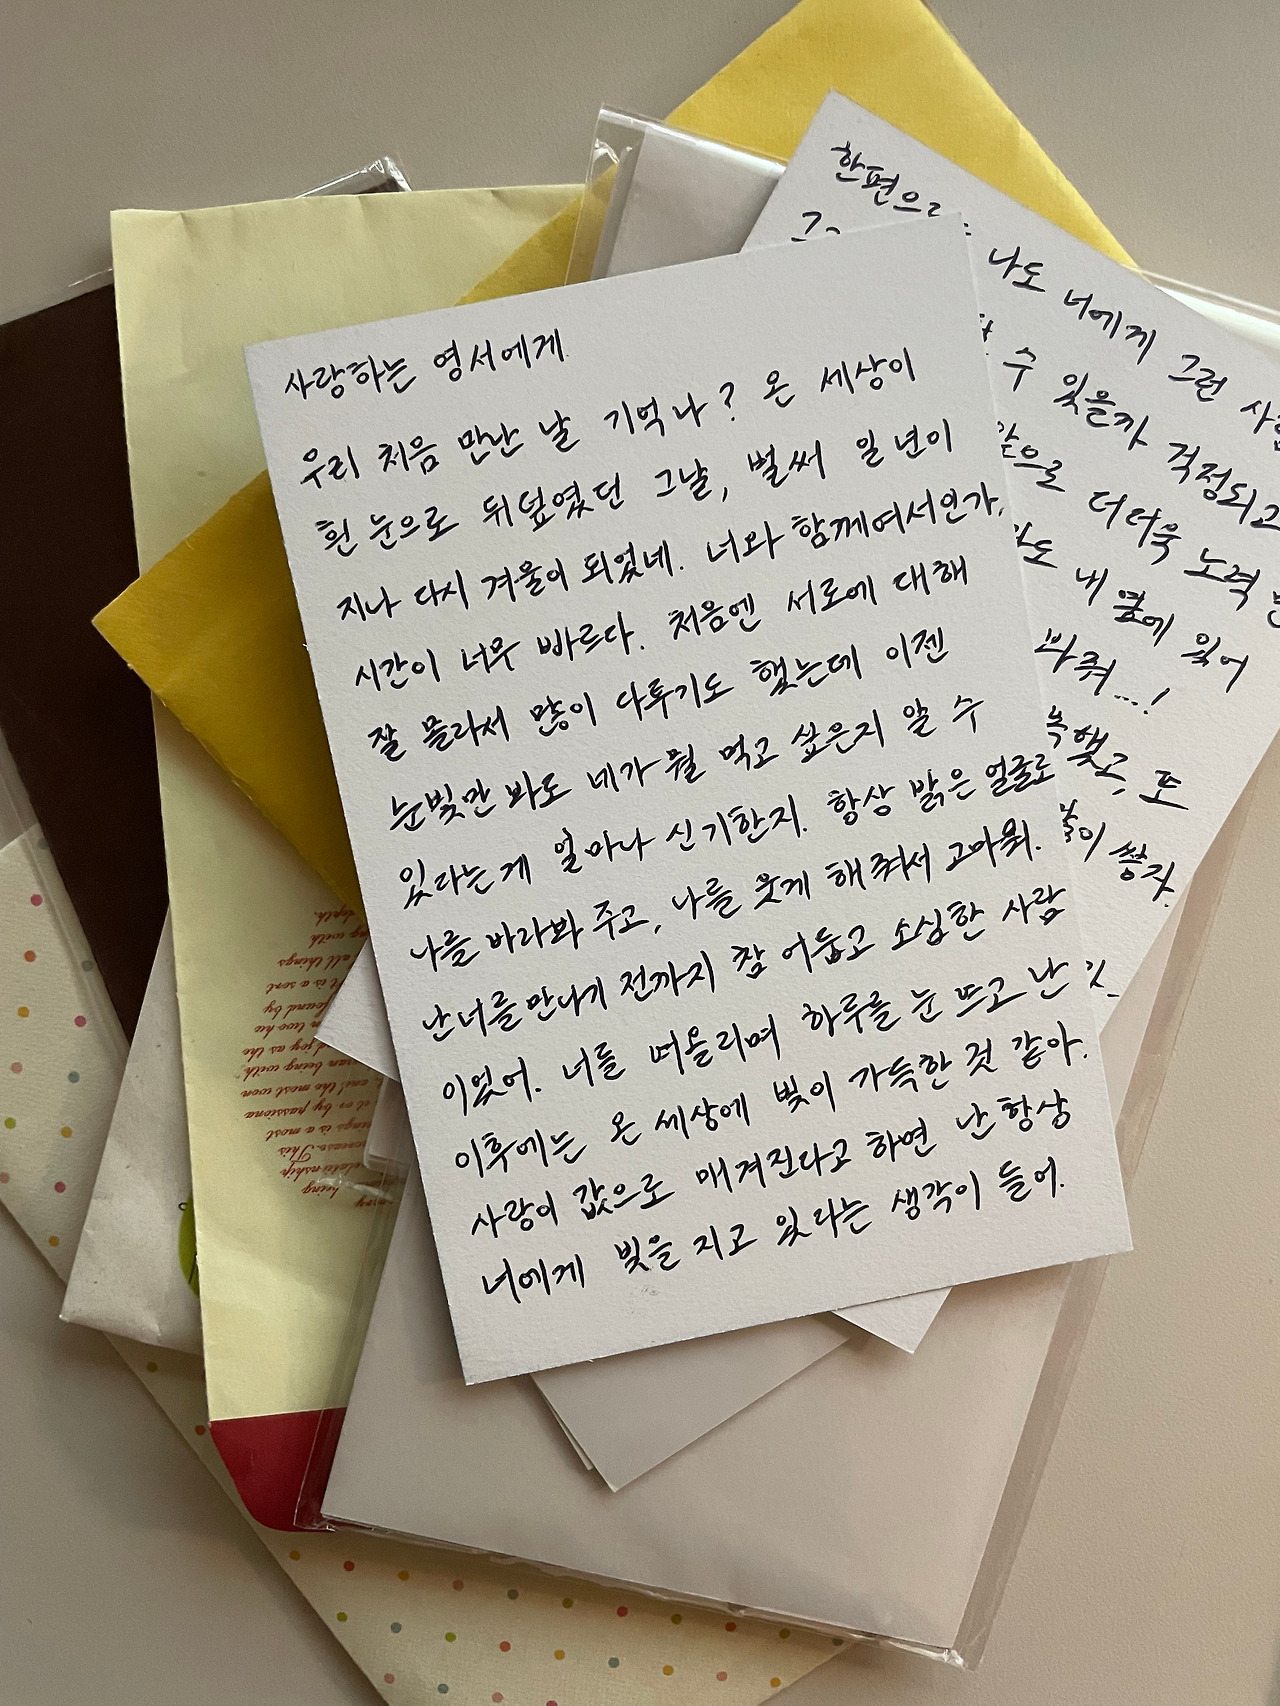 사랑하는 영서에게
우리 처음 만난 날 기억나? 온 세상이
흰 눈으로 뒤덮였던 그날, 벌써 일 년이
지나 다시 겨울이 되었네. 너와 함께여서인가,
시간이 너무 빠르다. 처음엔 서로에 대해
잘 몰라서 많이 다투기도 했는데 이젠
눈빛만 봐도 네가 뭘 먹고 싶은지 알 수
있다는게 얼마나 신기한지. 항상 밝은 얼굴로
나를 바라봐 주고, 나를 웃게 해줘서 고마워.
난 너를 만나기 전까지 참 어둡고 소심한 사람
이었어. 너를 떠올리며 하루를 눈 뜨고 난
이후에는 온 세상에 빛이 가득한 것 같아.
사랑이 값으로 매겨진다고 하면 난 항상
너에게 빚을 지고 있다는 생각이 들어.
한편으로
나도 너에게 그런
수 있을까 걱정되고
앞으로 더더욱 노력
내 옆에 있어
봐줘...!
또
쌓자.
depth.
with
all things
It is a sort
found by
two he
joy as the
being with
and the most won
it or by passiona
is a most
This
relationship
being